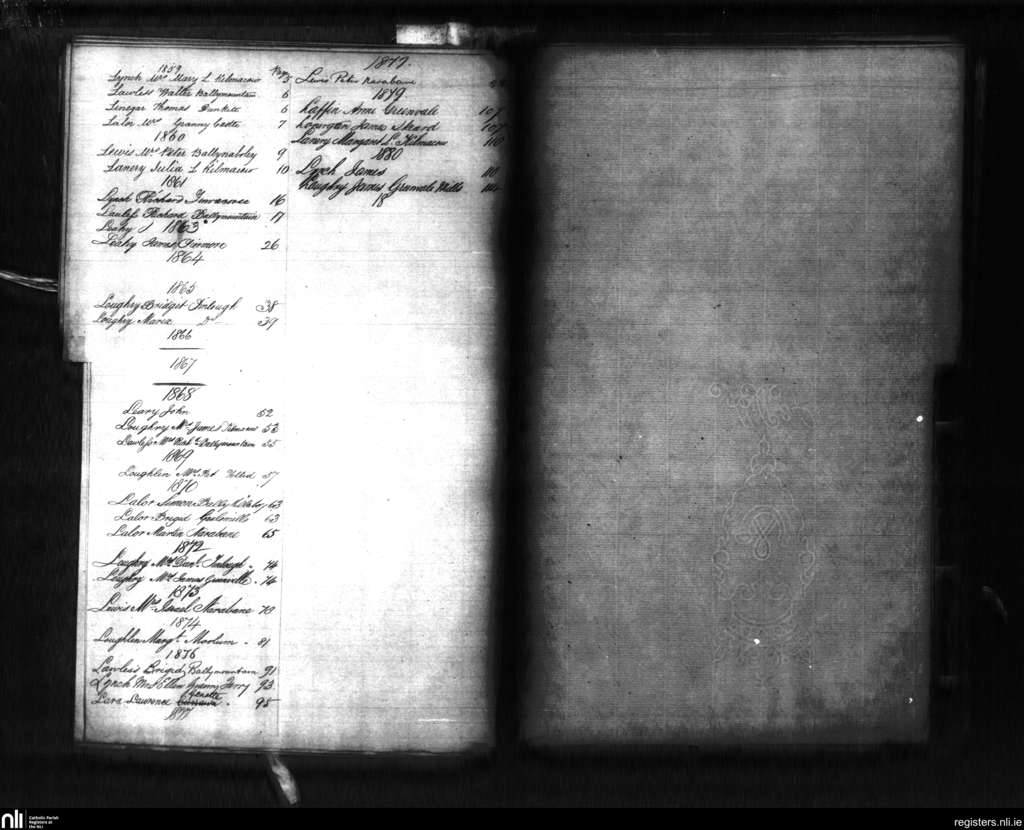 1859 Page
Lynch Mrs Mary L Kilmacow 5
Lawless Walter Ballymountain 6
Linegar Thomas Dunkitt 6
Lalor Mrs Granny Castle 7
1860
Lewis Mrs Peter Ballynaboley 9
Lanery Julia L Kilmacow 10
1861
Lynch Richard 16
Lawless Richard Ballymountain 17
Leahy J 1863
Leahy James 26
1864
1865
Loughry Bridget 38
Loughry Maria Do 39
1866
1867
1868
Leary John 52
Loughry Mrs James Kilmacow 53
Lawless Mrs Richd Ballymountain 55
1869
Loughlen Mrs Pat 57
1870
Lalor Simon Bally 63
Lalor Brigid 63
Lalor Martin Narabane 65
1872
Loughry Mrs Danl. 74
Loughry Mrs James Greenville 74
1873
Lewis Mrs Narabane 79
1874
Loughlen Margt. Moolum 81
1876
Lawless Brigid Ballymountain 91
Lynch Mrs Ellen Granny Ferry 93
Lara Lawrence 95
1877
1877.
Lewis Peter Narabane
1879
Laffin Anne Greenvale 107
James Skeard 107
Lanery Margaret L. Kilmacow 110
1880
Lynch James
Loughry James Greenvale Mills
18
nli
Catholic Parish
Registers at
the NLI
registers.nli.ie